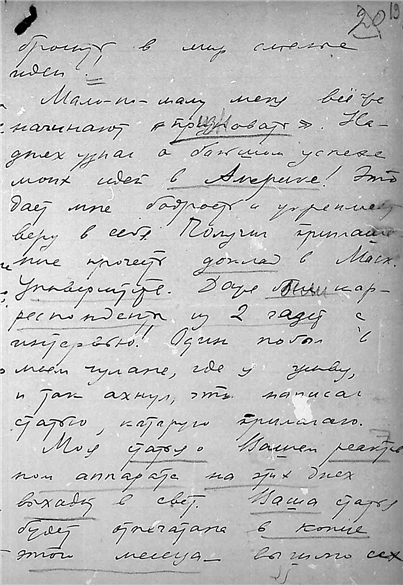 20 19
бросить в мир смелые
идеи. =
Мало-по-малу меня всё же
начинают «признавать». На-
днях узнал о большом успехе
моих идей в Америке! Это
дает мне бодрость и укрепляет
веру в себя. Получил приглаше-
ние прочесть доклад в Моск.
Университете. Даже были кор-
респонденты из 2 газет с
интервью! Один побыл в
моем чулане, где я живу,
и так ахнул, что написал
статью, которую прилагаю.
Моя статья о Вашем реактив-
ном аппарате на этих днях
выходит в свет. Ваша статья
будет отпечатана в конце
этого месяца